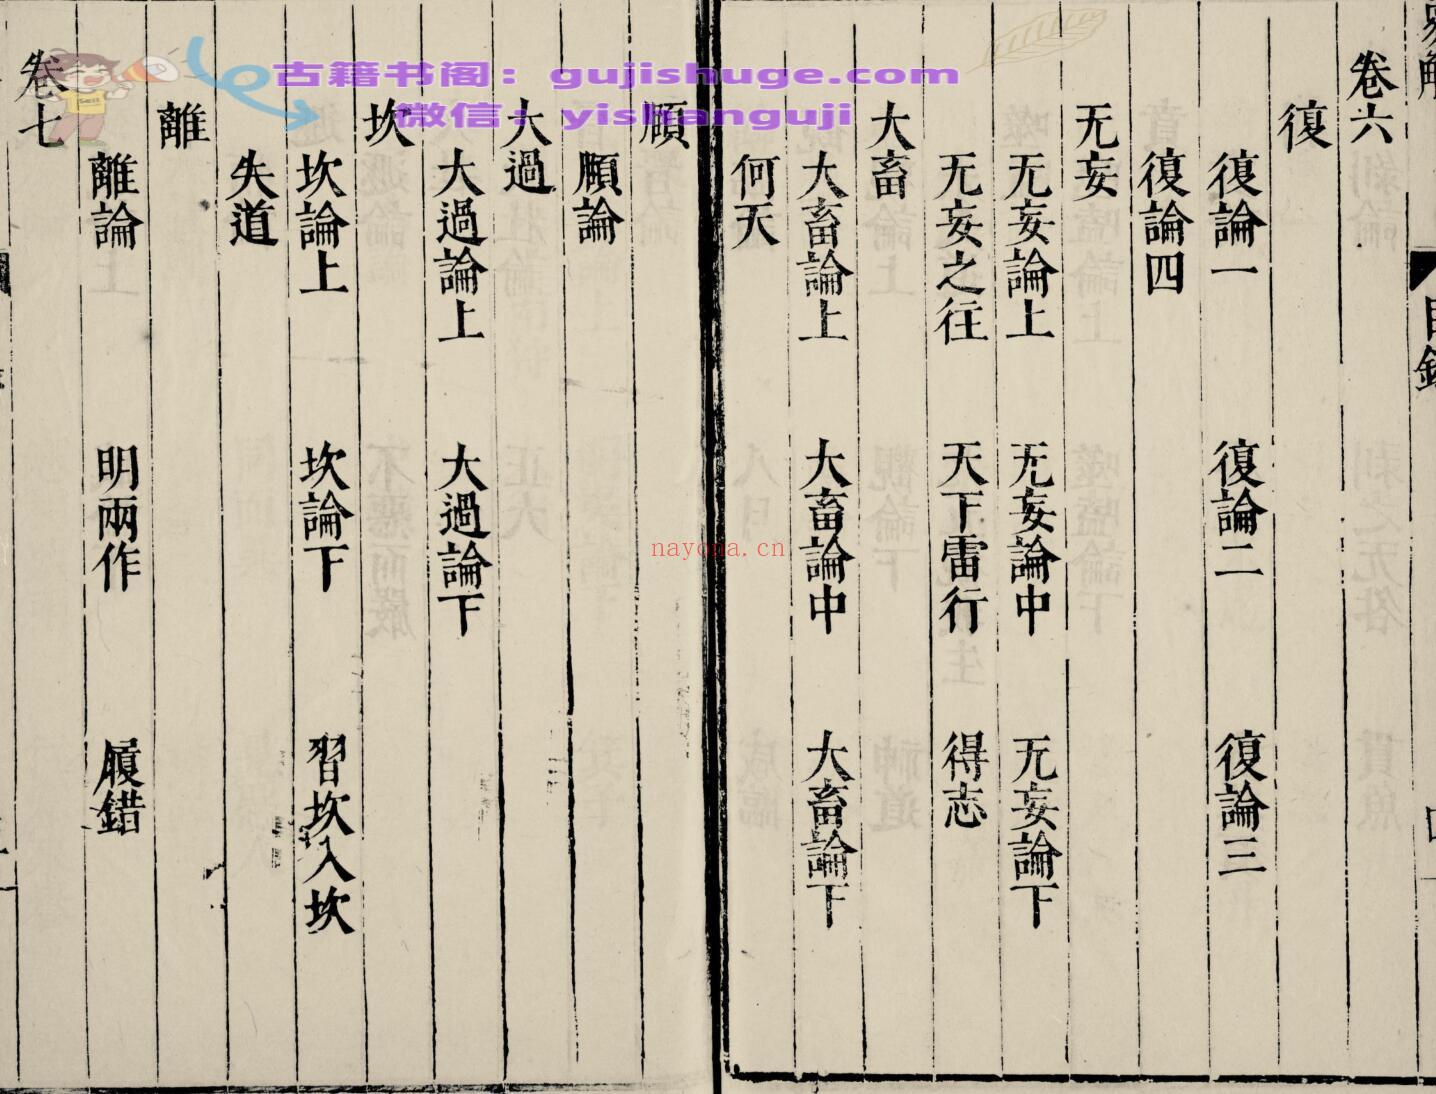 古籍书阁：gujishuge.com
微信：yishanguji
nayona.cn
目錄
卷六
復
復論一 復論二 復論三
復論四
无妄
无妄論上 无妄論中 无妄論下
无妄之往 天下雷行 得志
大畜
大畜論上 大畜論中 大畜論下
何天
頤
頤論
大過
大過論上 大過論下
坎
坎論上 坎論下 習坎入坎
失道
離
離論 明兩作 履錯
卷七